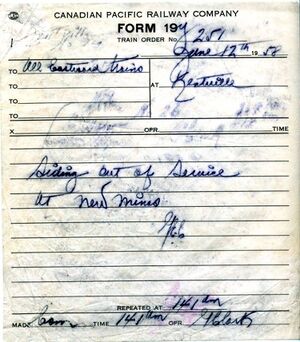 CANADIAN PACIFIC RAILWAY COMPANY
FORM 19Y
TRAIN ORDER No. 251
June 12th 1958
TO All Eastward trains
TO AT Kentville
TO
TO
X OPR. TIME
Siding out of service
at New Minas
REPEATED AT 141 am
MADE Com TIME 141 am OPR Clark